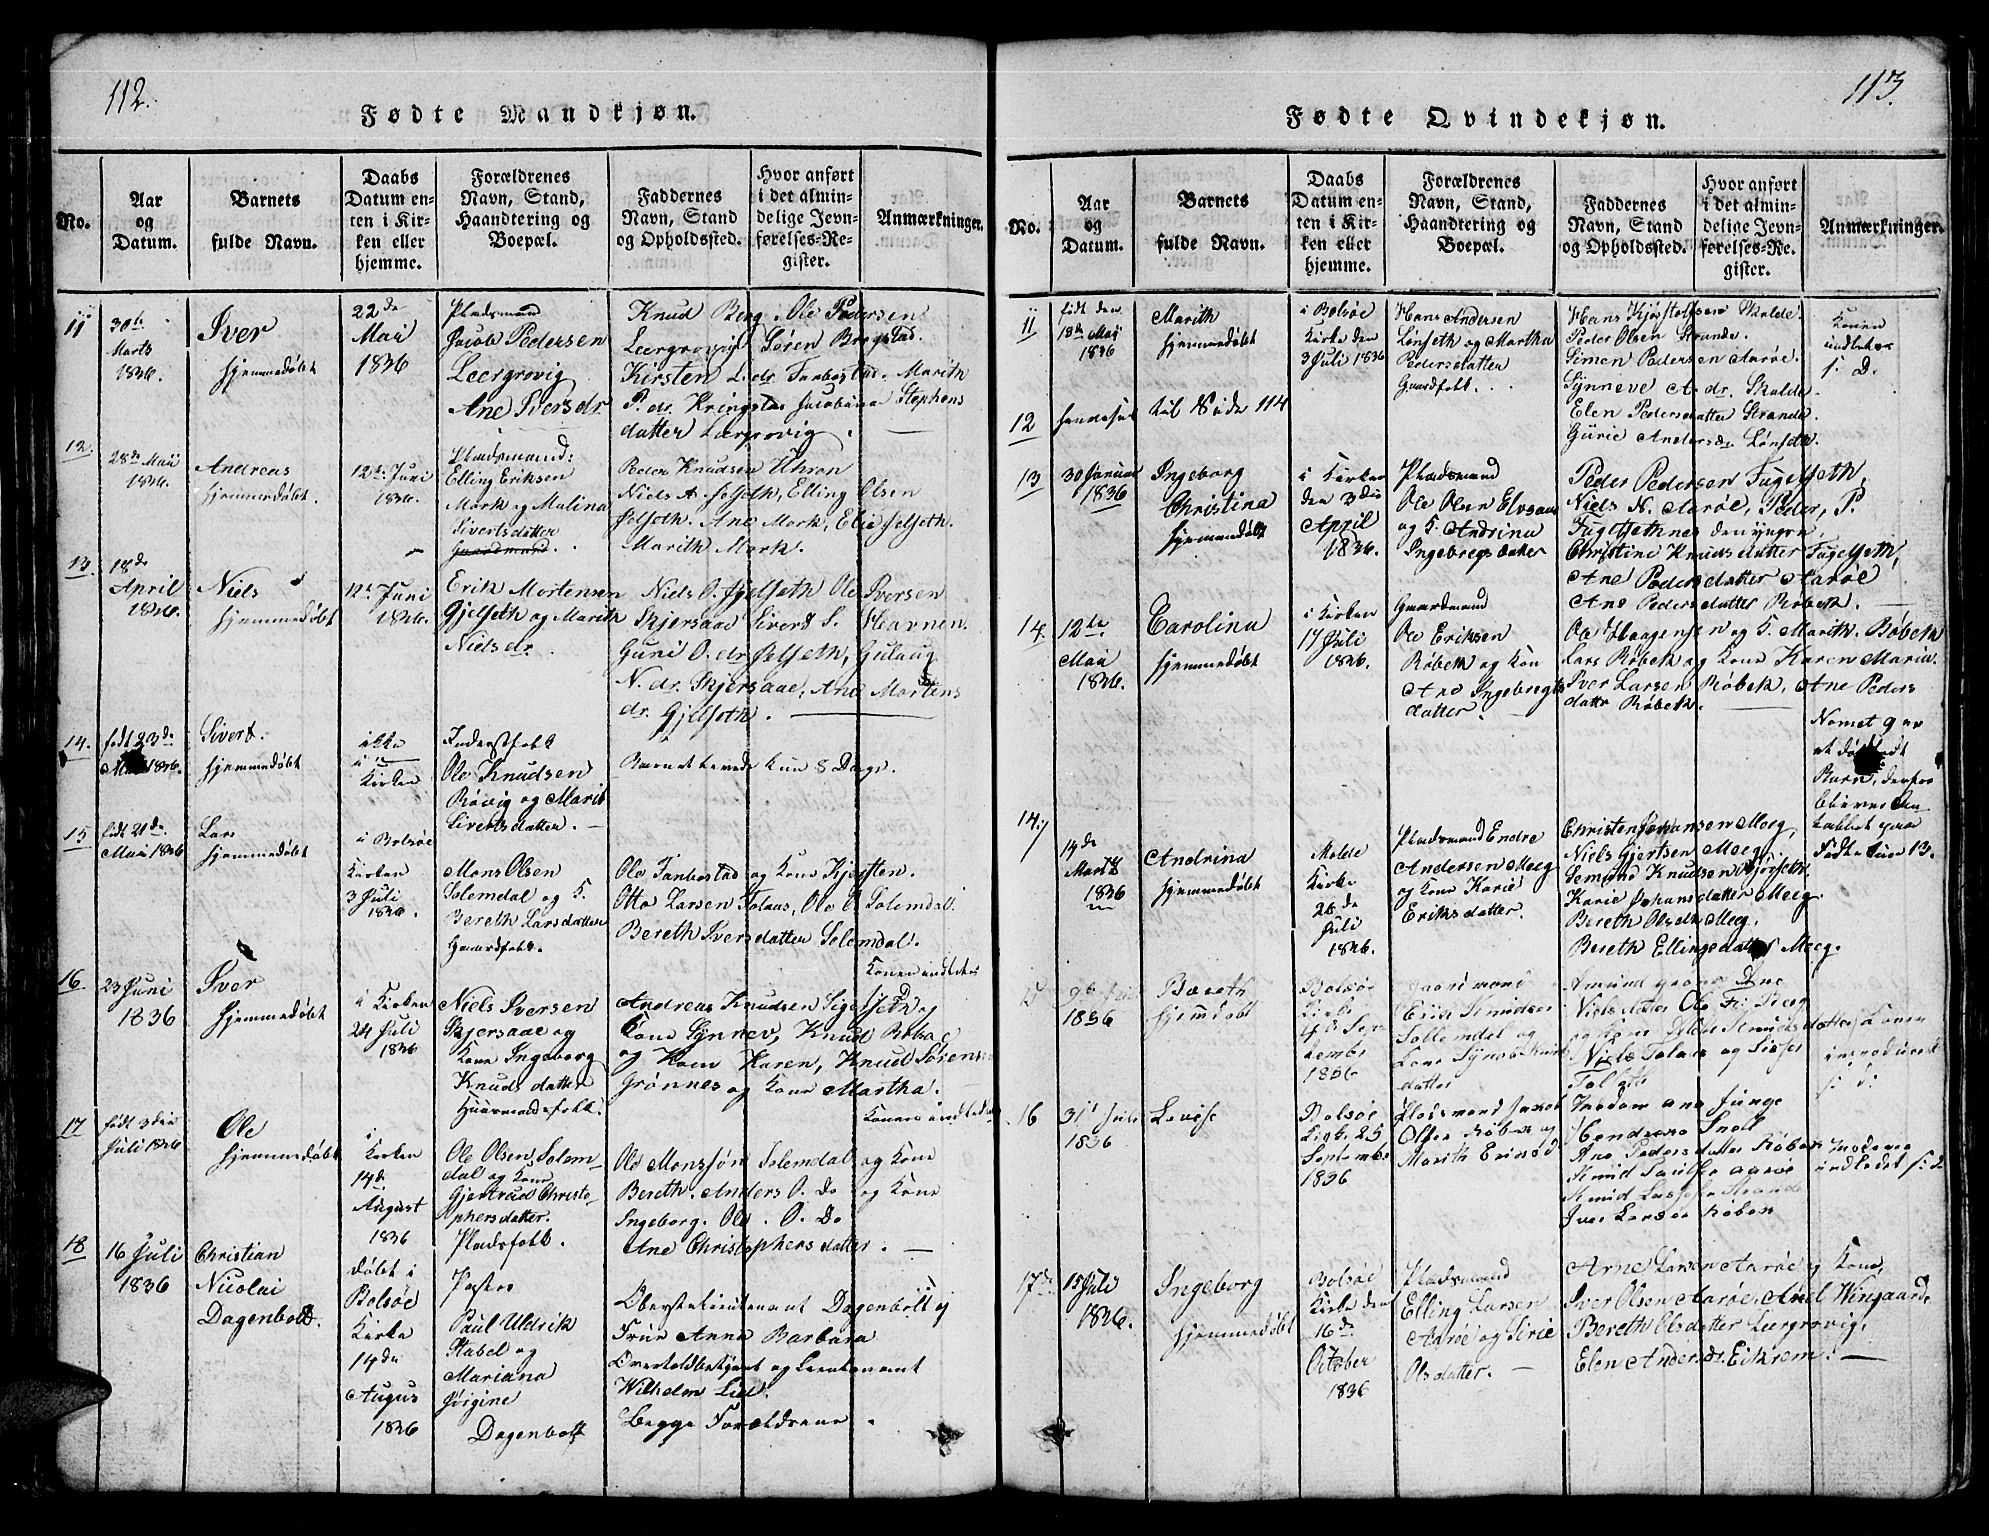 112.
Fødte Mandkjøn.
No.
Aar
og
Datum.
Barnets
fulde Navn.
Daabs
Datum en-
ten i Kir-
ken eller
hjemme.
Forældrenes
Navn, Stand,
Haandtering og
Boepæl.
Faddernes
Navn, Stand
og Opholdssted.
Hvor anført
i det almin-
delige Jevn-
førelses-Re-
gister.
Anmærkninger.
11
30te
Marts
1836.
Iver
hjemmedøbt
22de
Maii
1836
Pladsmand
Jacob Pedersen
Leergrovig
Ane Iversdr
Knud Berg, Ole Pedersen
Leergrovig Søren Bragstad.
Kirsten L.dr. Farbostad. Marith
P. dr. Kringstad Jacobina Stephens
datter Lærgrovig.
12.
28de Maii
1836.
Andreas
hjemmedøbt.
12te Juni
1836.
Pladsmand:
Elling Eriksen
Mork og Malina
Sivertsdatter
Gaardmand.
Peder Knudsen Uhron
Niels A. Felseth, Elling Olsen
Felseth. Ane Mork, Elie Felseth.
Marith Mork.
13.
18de
April
1836.
Niels
hjemmedøbt
12te Juni
1836.
Erik Mortensen
Gjelseth og Marith
Nielsdr.
Niels O. Gjelseth Ole Iversen
Skjersaae Sivert S. Havnen.
Guni O. dr Felseth, Gulaug
N. dr. Skjersaae, Ane Mortens
dr. Gjelseth.
14.
født 23de
Maii 1836.
Sivert.
hjemmedøbt
ikke
i
Kirken
Inderstfolk
Ole Knudsen
Røvig og Marit
Sivertsdatter.
Barnet levede kun 8 Dage.
15
født 21de
Maii 1836
Lars
hjemmedøbt
i Bolsøe
Kirken
3 Juli
1836.
Mons Olsen
Solemdal og K.
Bereth Larsdatter
Gaardfolk.
Ole Farbostad og Kone Kjersten.
Otto Larsen Tolaas, Ole O Solemdal.
Bereth Iversdatter Solemdal.
16.
23 Juni
1836
Iver
hjemmedøbt
i Kirken
24 Juli
1836
Niels Iversen
Skjersaae og
Kone Ingeborg
Knudsdatter
Huusmandsfolk.
Andreas Knudsen Sigerseth og
Kone Synnev, Knud Bolsøe
og Kone Karen, Knud Sørensen
Grønnes og Kone Martha.
Konen indledet
17
født 3die
Juli 1836
Ole
hjemmedøbt
i
Kirken
14de
August
1836
Ole Olsen Solem-
dal og Kone
Gjertrud Christo-
phersdatter.
Pladsfolk.
Ole Monssøn Solemdal og Kone
Bereth. Anders O. Do og Kone
Ingeborg. Ole. O. Do
Ane Christophersdatter.
Konen indledet
18
16 Juli
1836
Christian
Nicolai
Dagenbolt.
døbt i
Bolsøe
Kirke
14de
Augus
1836
Pastor
Paul Uldrik
Stabel og
Mariana
Jørgine
Dagenbolt
Oberstlieutenant Dagenbolt og
Frue Anna Barbara
Overtoldbetjent og Lieutenant
Wilhelm Lied.
Begge Forældrene.
113.
Fødte Qvindekjøn.
No.
Aar
og
Datum.
Barnets
fulde Navn.
Daabs
Datum en-
ten i Kir-
ken eller
hjemme.
Forældrenes
Navn, Stand,
Haandtering og
Boepæl.
Faddernes
Navn, Stand
og Opholdssted.
Hvor anført
i det almin-
delige Jevn-
førelses-Re-
gister.
Anmærkninger.
11
født den
18de Maii
1836
Marith
hjemmedøbt
i Bolsøe
Kirke den
3 Juli 1836
Hans Andersen
Lønseth og Martha
Pedersdatter
Gaardfolk.
Hans Kjøstolfsen Skalde.
Peder Olsen Strande.
Simen Pedersen Aarøe.
Synneve A. dr. Skalde.
Elen Pedersdatter Strande.
Gurie Andersdr Lønseth.
Konen
indledet
s. D.
12
henviises
til Side 114
13
30 Januar
1836
Ingeborg
Christina
hjemmedøbt
i Kirken
den 3die
April
1836.
Pladsmand
Ole Olsen Elvsaas
og K. Andrina
Ingebregsdatter
Peder Pedersen Fugelseth,
Niels N. Aarøe, Peder, P.
Fugelsethnes den yngre.
Christine Knudsdatter Fugelseth,
Ane Pedersdatter Aarøe
Ane Pedersdatter Røbek.
14.
12te
Maii
1836.
Carolina
hjemmedøbt
i Kirken
17 Juli
1836.
Gaardmand
Ole Eriksen
Røbek og Kone
Ane Ingebregts
datter.
Ole Haagensen og K. Marith. Røbek
Lars Røbek og Kone Karen Maria.
Iver Larsen Røbek, Ane Peders
datter Røbek.
14.
14de
Marts
1836
Andrina
hjemmedøbt
Molde
Kirke
26de
Juli
1836.
Pladsmand Endre
Andersen Meeg
og Kone Karie
Eriksdatter.
Christen Johansen Meeg,
Niels Gjertsen Meeg.
Semine Knudsen Mjøseth.
Karie Johansdatter Meeg.
Bereth Olsdtr Meeg.
Bereth Ellingsdatter Meeg.
Nomet 9 er
et dødfødt
Barn, derfor
bliver An-
tallet paa
Fødte kun 13.
15
1836
Bereth
hjemdøbt
Bolsøe
Kirke
1836
Gaardmand
Erik Knudsen
Sollemdal og
Kone Synøb Knuds
datter
Amund
Nielsdatter Ole
Niels Tolaas og Sidsel
Konen
introduceret
s: d:
16
31te Juli
1836
Lovise
Bolsøe
Kirke 25
September
1836
Pladsmand Jacob
Olsen Røbek og
Marith Eriksd
Madam Ane Junge
Hendrene Snell
Ane Pedersdatter Røbek
Knud Paulsen Aarøe
Knud Larsen Strande
Iver Larsen Røbek
Moderen
indledet s: D
17de
15 Juli
1836.
Ingeborg
hjemmedøbt
Bolsøe
Kirke den
16de
October
1836
Pladsmand
Elling Larsen
Aarøe og Sirie
Olsdatter.
Arne Larsen Aarøe og Kone,
Iver Olsen Aarøe, Axel Wingaard,
Bereth Olsdatter Lærgrovig,
Elen Andersdr. Eikrem.